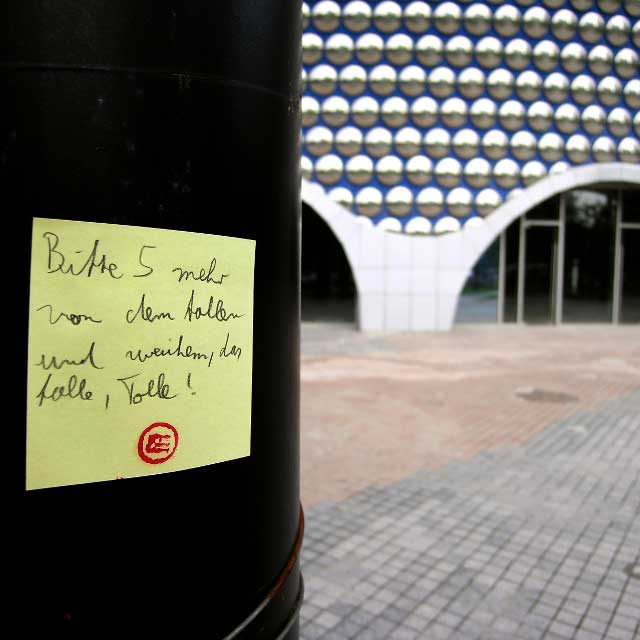 Bitte 5 mehr
von dem tollen
und weichen, das
tolle, Tolle!